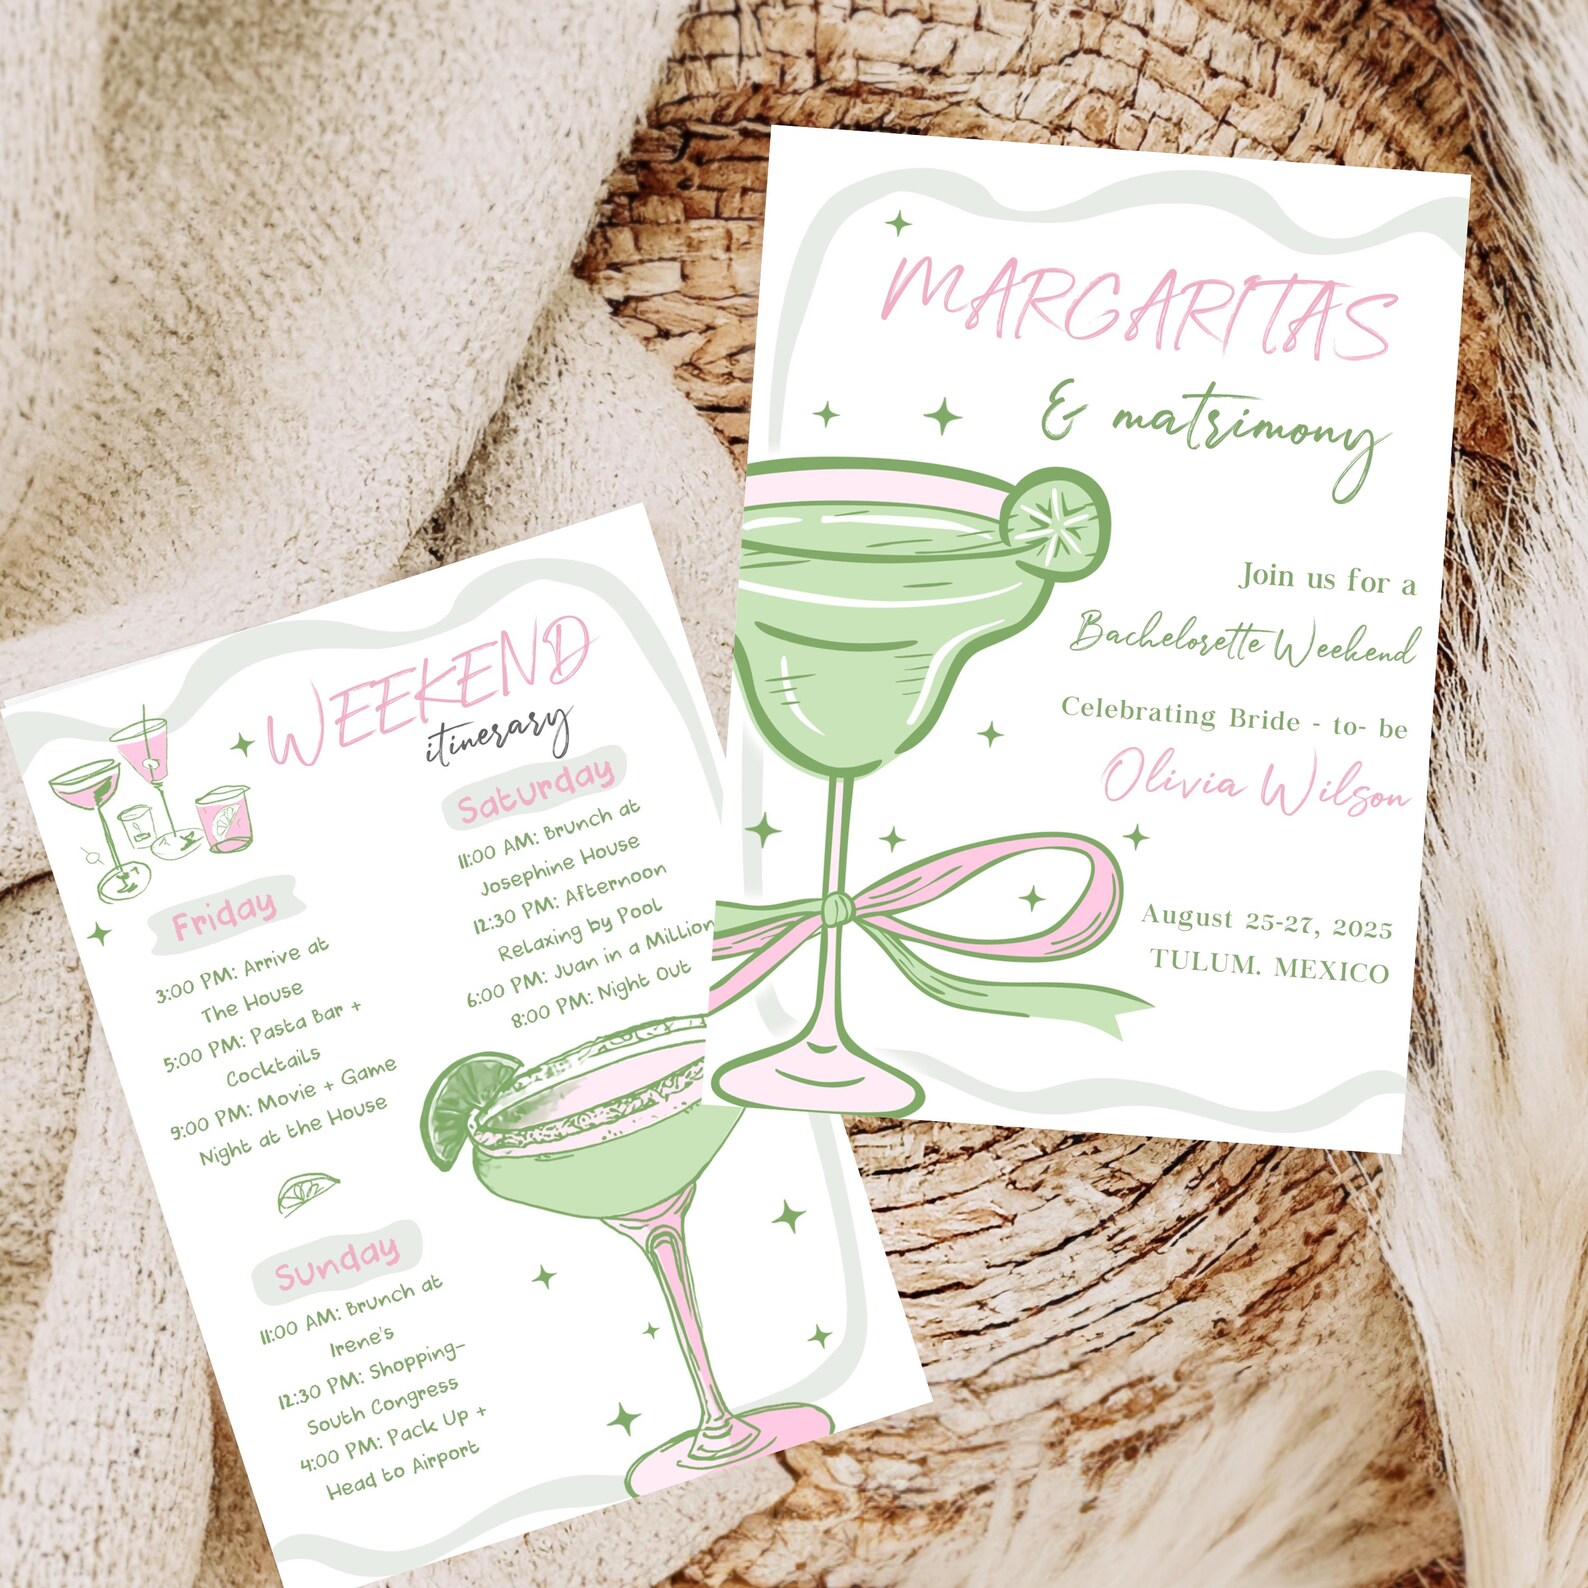 MARGARITAS
& matrimony
Join us for a
Bachelorette Weekend
Celebrating Bride - to- be
Olivia Wilson
August 25-27, 2025
TULUM. MEXICO
WEEKEND
itinerary
Friday
3:00 PM: Arrive at
The House
5:00 PM: Pasta Bar +
Cocktails
9:00 PM: Movie + Game
Night at the House
Saturday
11:00 AM: Brunch at
Josephine House
12:30 PM: Afternoon
Relaxing by Pool
6:00 PM: Juan in a Million
8:00 PM: Night Out
Sunday
11:00 AM: Brunch at
Irene's
12:30 PM: Shopping-
South Congress
4:00 PM: Pack Up +
Head to Airport